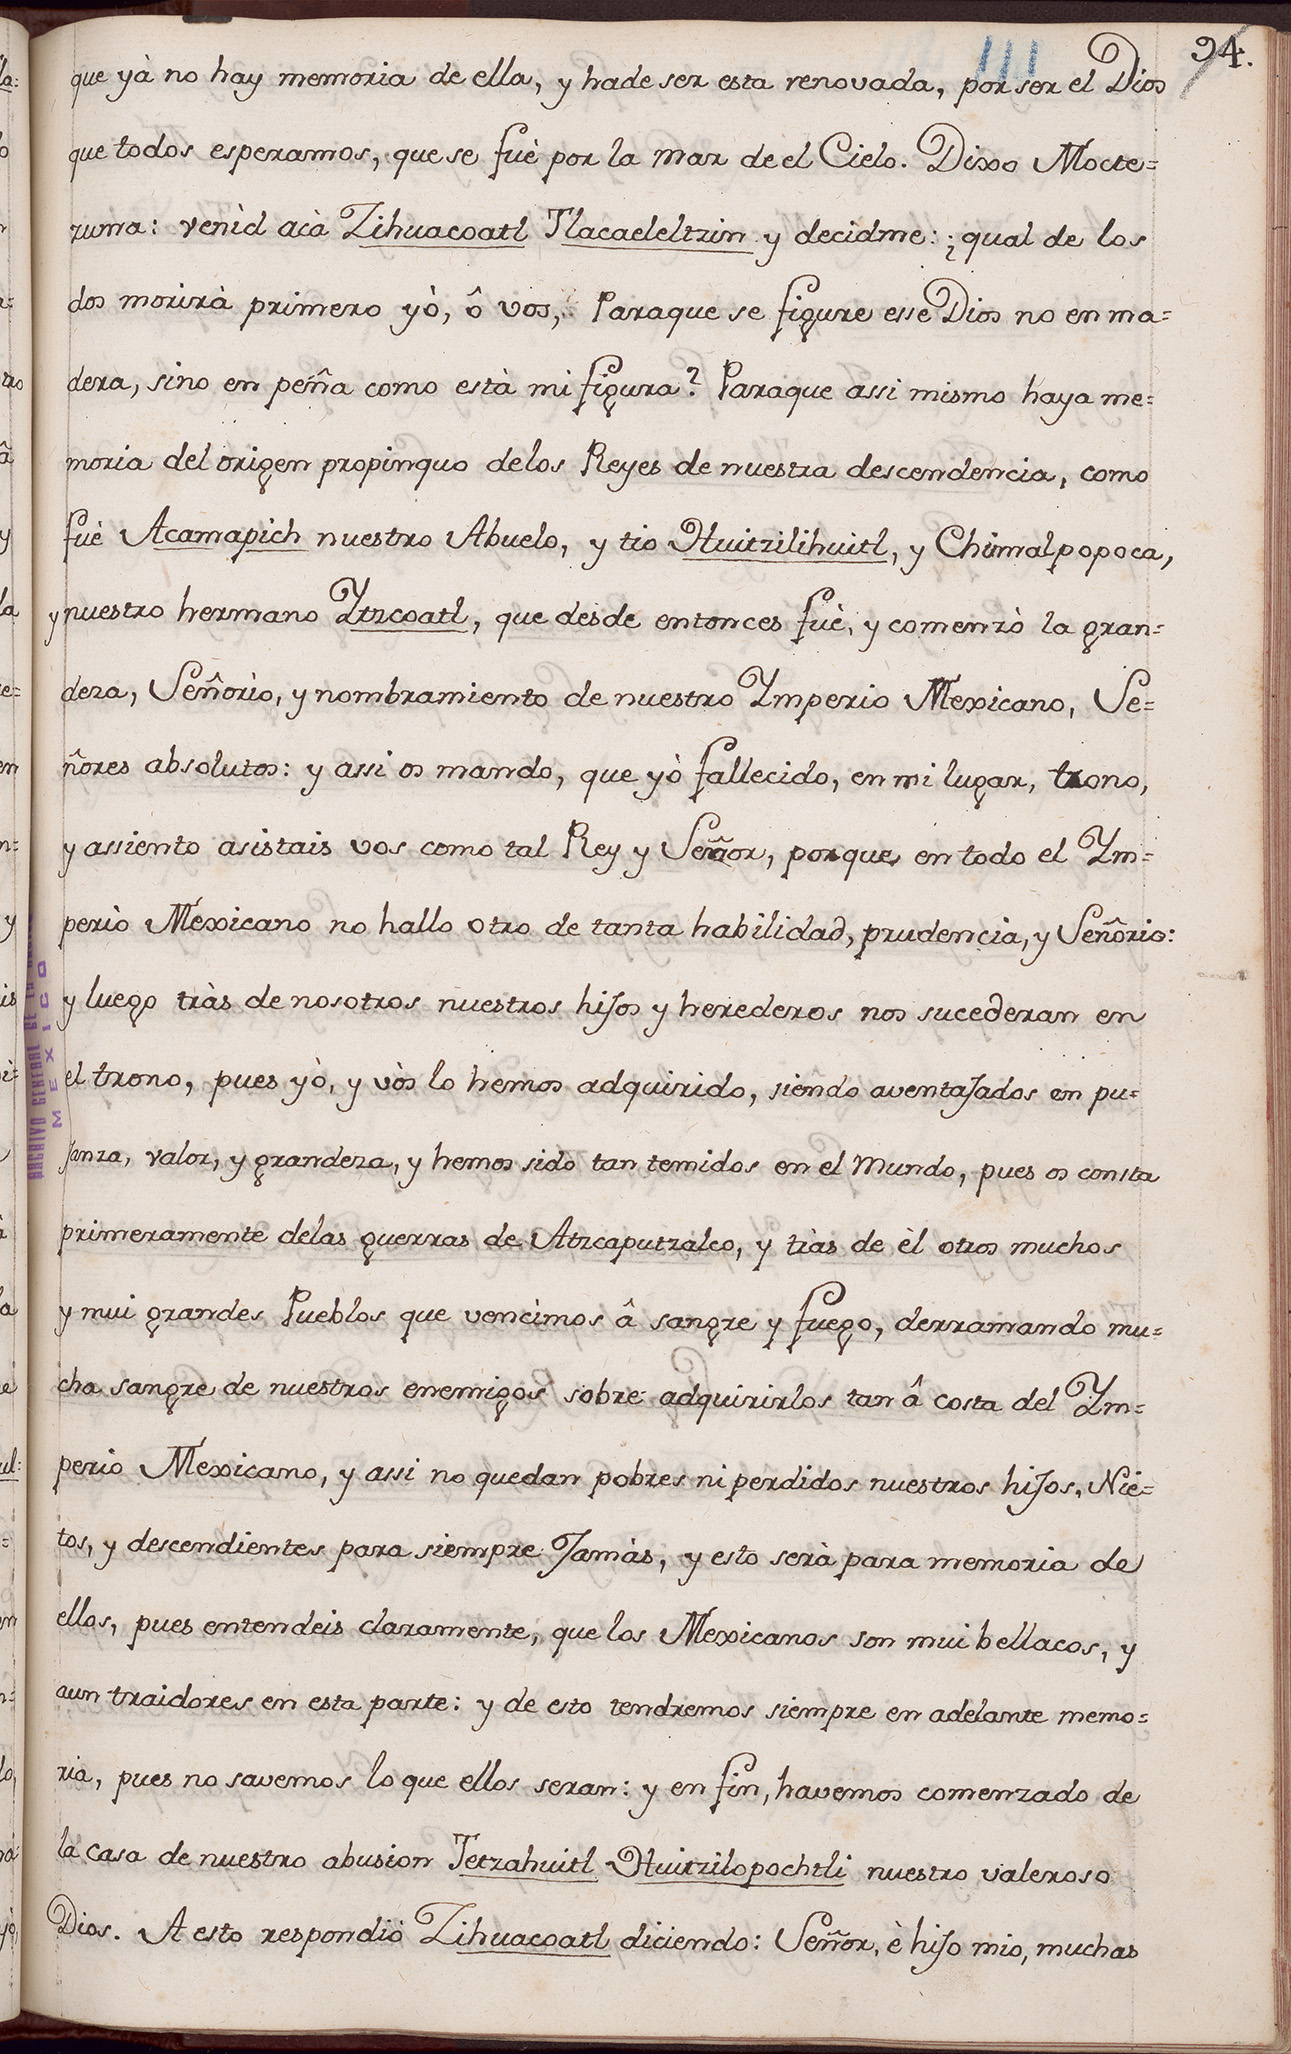 111
94.
que yà no hay memoria de ella, y hade ser esta renovada, por ser el Dios
que todos esperamos, que se fuè por la mar de el Cielo. Dixo Mocte=
zuma: venìd acà Zihuacoatl Tlacaeleltzin y decidme: ¿qual de los
dos morirà primero yò, ô vos, Paraque se figure esse Dios no en ma=
dera, sino en peña como està mi figura? Paraque assi mismo haya me=
moria del origen propinquo delos Reyes de nuestra descendencia, como
fuè Acamapich nuestro Abuelo, y tio Huitzilihuitl, y Chimalpopoca,
y nuestro hermano Ytzcoatl, que desde entonces fuè, y comenzò la gran=
deza, Señorìo, y nombramiento de nuestro Ymperio Mexicano, Se=
ñores absolutos: y assi os mando, que yò fallecido, en mi lugar, trono,
y assiento asistais vos como tal Rey y Señor, porque en todo el Ym=
perio Mexicano no hallo otro de tanta habilidad, prudencia, y Señorio:
y luego tràs de nosotros nuestros hijos y herederos nos sucederan en
el trono, pues yò, y vòs lo hemos adquirido, siendo aventajados en pu=
janza, valor, y grandeza, y hemos sido tan temidos en el Mundo, pues os consta
primeramente delas guerras de Atzcaputzalco, y tràs de èl otros muchos
y mui grandes Pueblos que vencimos â sangre y fuego, derramando mu=
cha sangre de nuestros enemigos sobre adquirirlos tan â costa del Ym=
perio Mexicano, y assi no quedan pobres ni perdidos nuestros hijos, Nie=
tos, y descendientes para siempre Jamàs, y esto serà para memoria de
ellos, pues entendeis claramente, que los Mexicanos son mui bellacos, y
aun traidores en esta parte: y de esto tendremos siempre en adelante memo=
ria, pues no savemos lo que ellos seran: y en fin, havemos comenzado de
la casa de nuestro abusion Tetzahuitl Huitzilopochtli nuestro valeroso
Dios. A esto respondiò Zihuacoatl diciendo: Señor, è hijo mio, muchas
ARCHIVO GENERAL DE LA
MEXICO